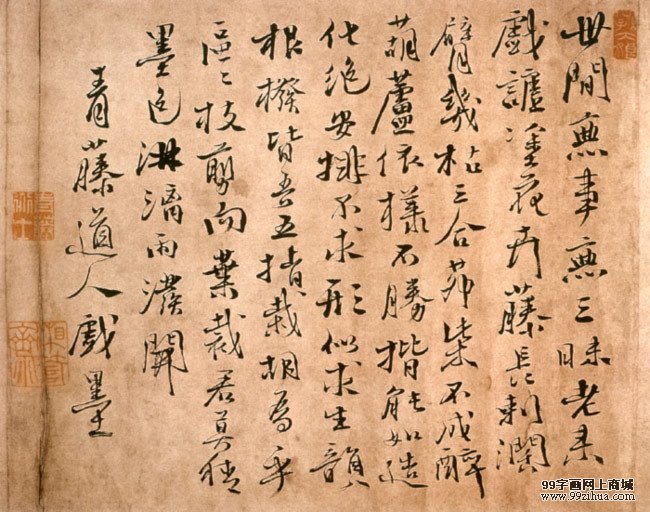 世間無事無三昧老来
戲謔塗花卉藤長刺闊
臂幾枯三合茆柴不成醉
葫蘆依樣不勝揩能如造
化絕安排不求形似求生韻
根撥皆吾五指栽胡為乎
區〻枝剪而葉裁君莫猜
墨色淋漓雨潑開
青藤道人戲墨
99字画网上商城
www.99zihua.com